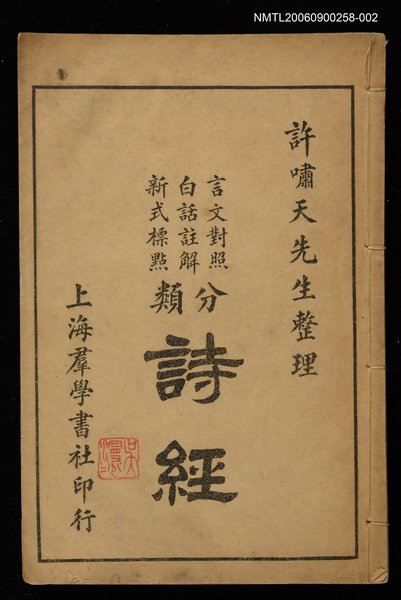 NMTL20060900258-002
許嘯天先生整理
言文對照
白話註解
新式標點
分類
詩經
上海羣學書社印行